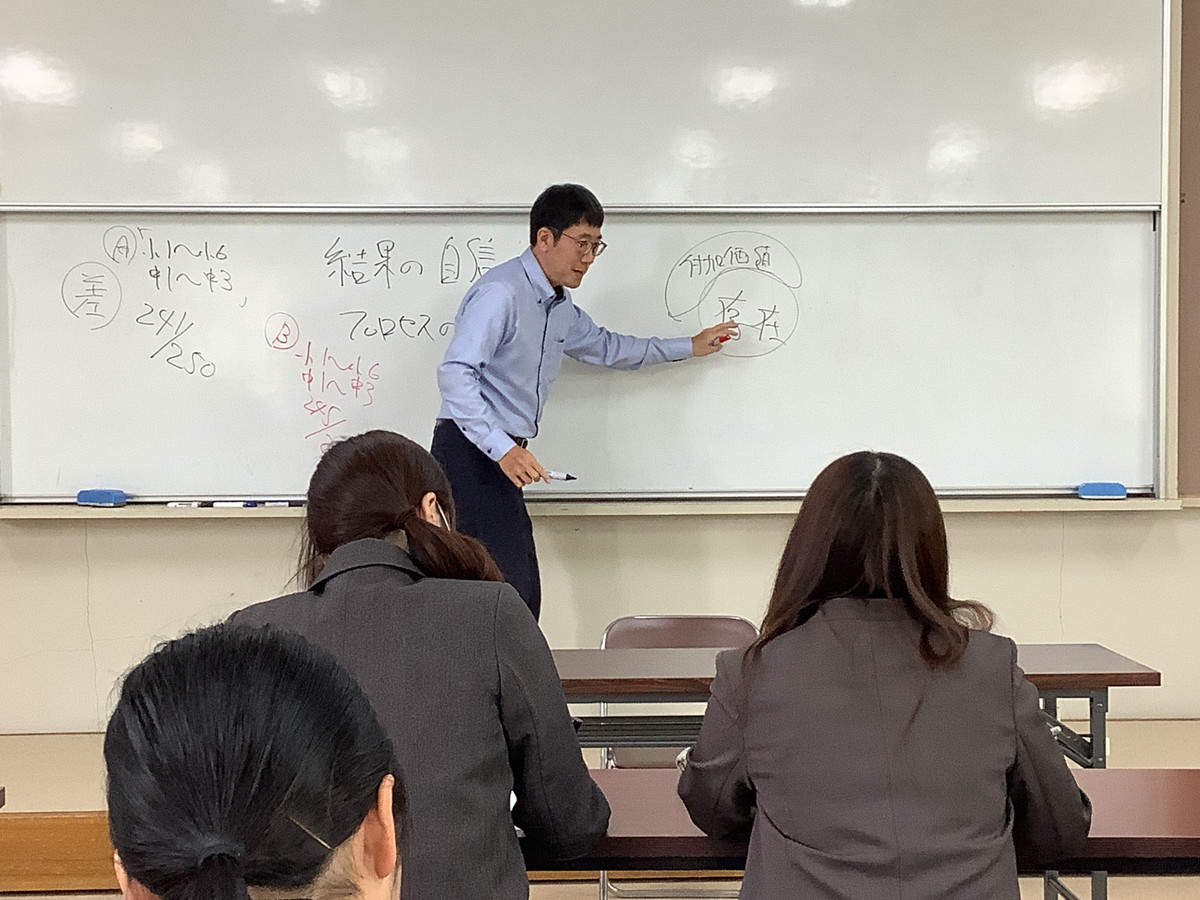 差
A
小1〜小6
中1〜中3
241/250
結果の自信
プロセスの
B
小1〜小6
中1〜中3
245/
付加価値
存在